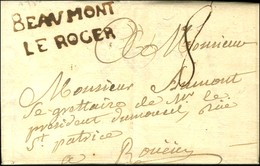 BEAUMONT
LE ROGER
A Monsieur
Monsieur Dumont
Secrettaire de Mr. le
président dumousel rüe
St patrice
a Roüen